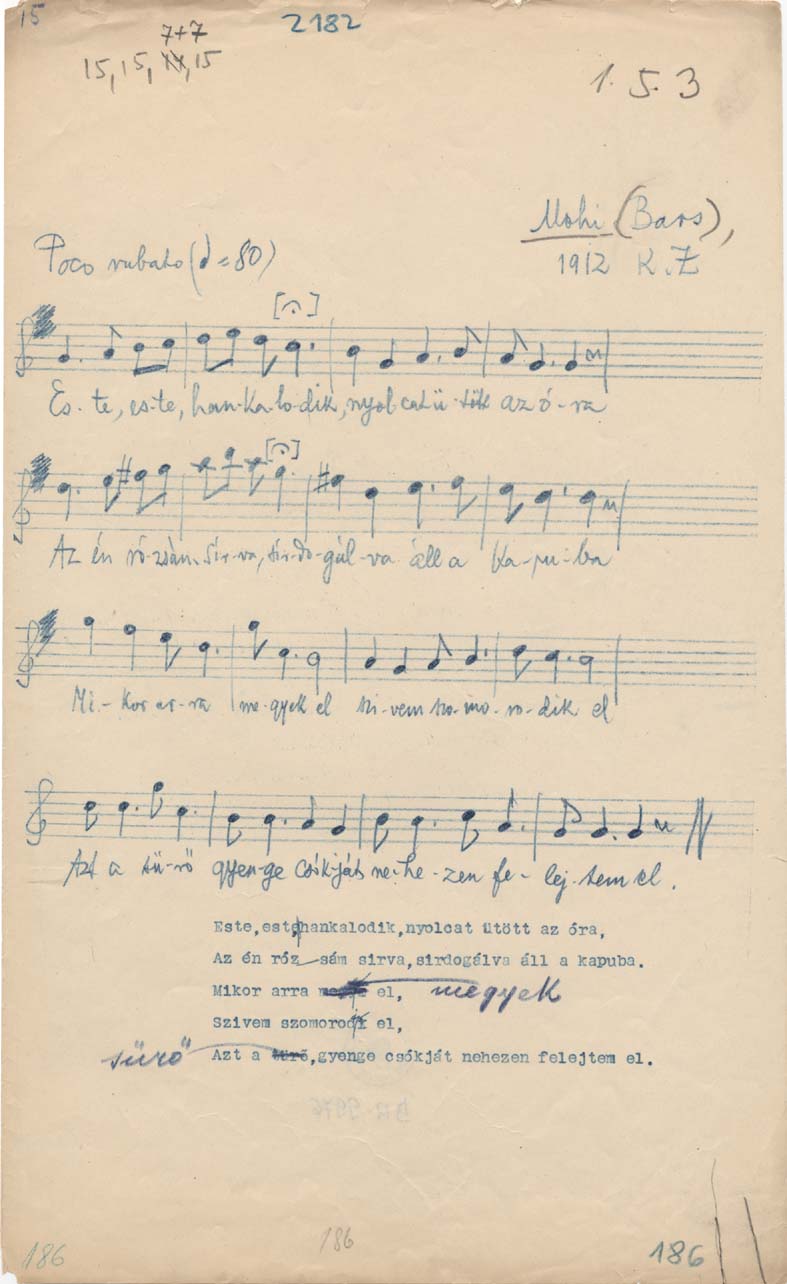 15
2182
7+7
15, 15, 14, 15
1. 5. 3
Mohi (Bars),
1912 K. Z
Poco rubato (♩ = 80)
Es- te, es-te, han-ka-lo-dik, nyolcat ü-tött az ó-ra
Az én ró-zsám sir-va, sir-do-gál-va áll a ka-pu-ba
Mi- kor ar-ra me-gyek el szi-vem szo-mo-ro-dik el
Azt a sü-rő gyen-ge csók-ját ne-he-zen fe- lej-tem el.
Este,este,hankalodik,nyolcat ütött az óra,
Az én rózsám sirva,sirdogálva áll a kapuba.
Mikor arra el, megyek
Szivem szomorodik el,
sürő Azt a türő,gyenge csókját nehezen felejtem el.
186
186
186